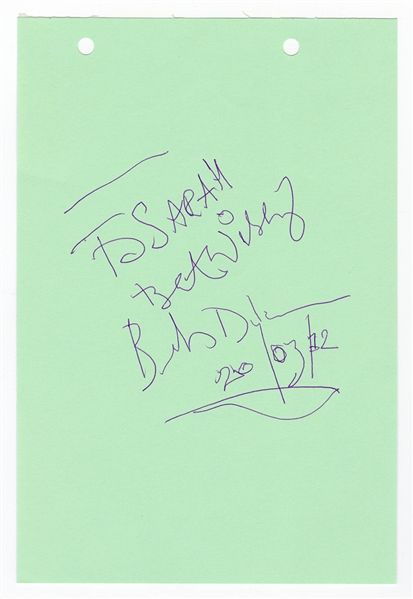 To SARAH
Best Wishes
Bob Dylan
20/03/82